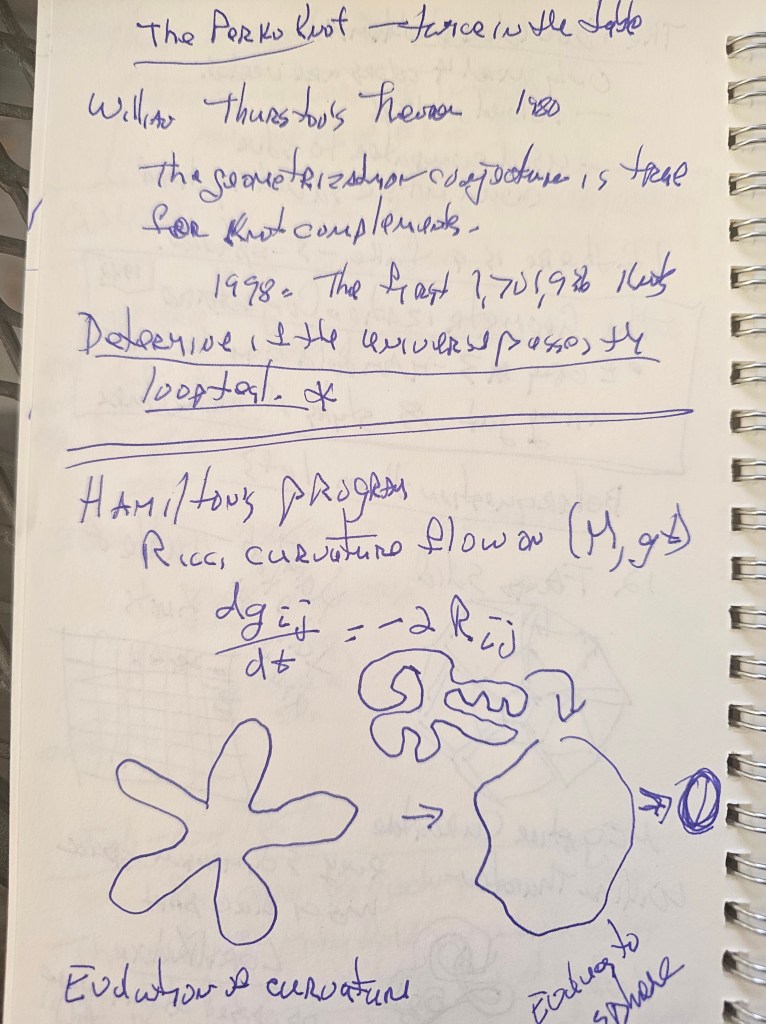 The Perko Knot — twice in the table
William Thurston's Theorem 1980
The geometrization conjecture is true
for Knot complements.
1998. The first 1,701,936 Knots
Determine if the universe passes the
loop test. *
HAMILTON'S PROGRAM
Ricci curvature flow on (M, gt)
dgij/dt = -2 Rij
Evolution of curvature
Evolving to
sphere